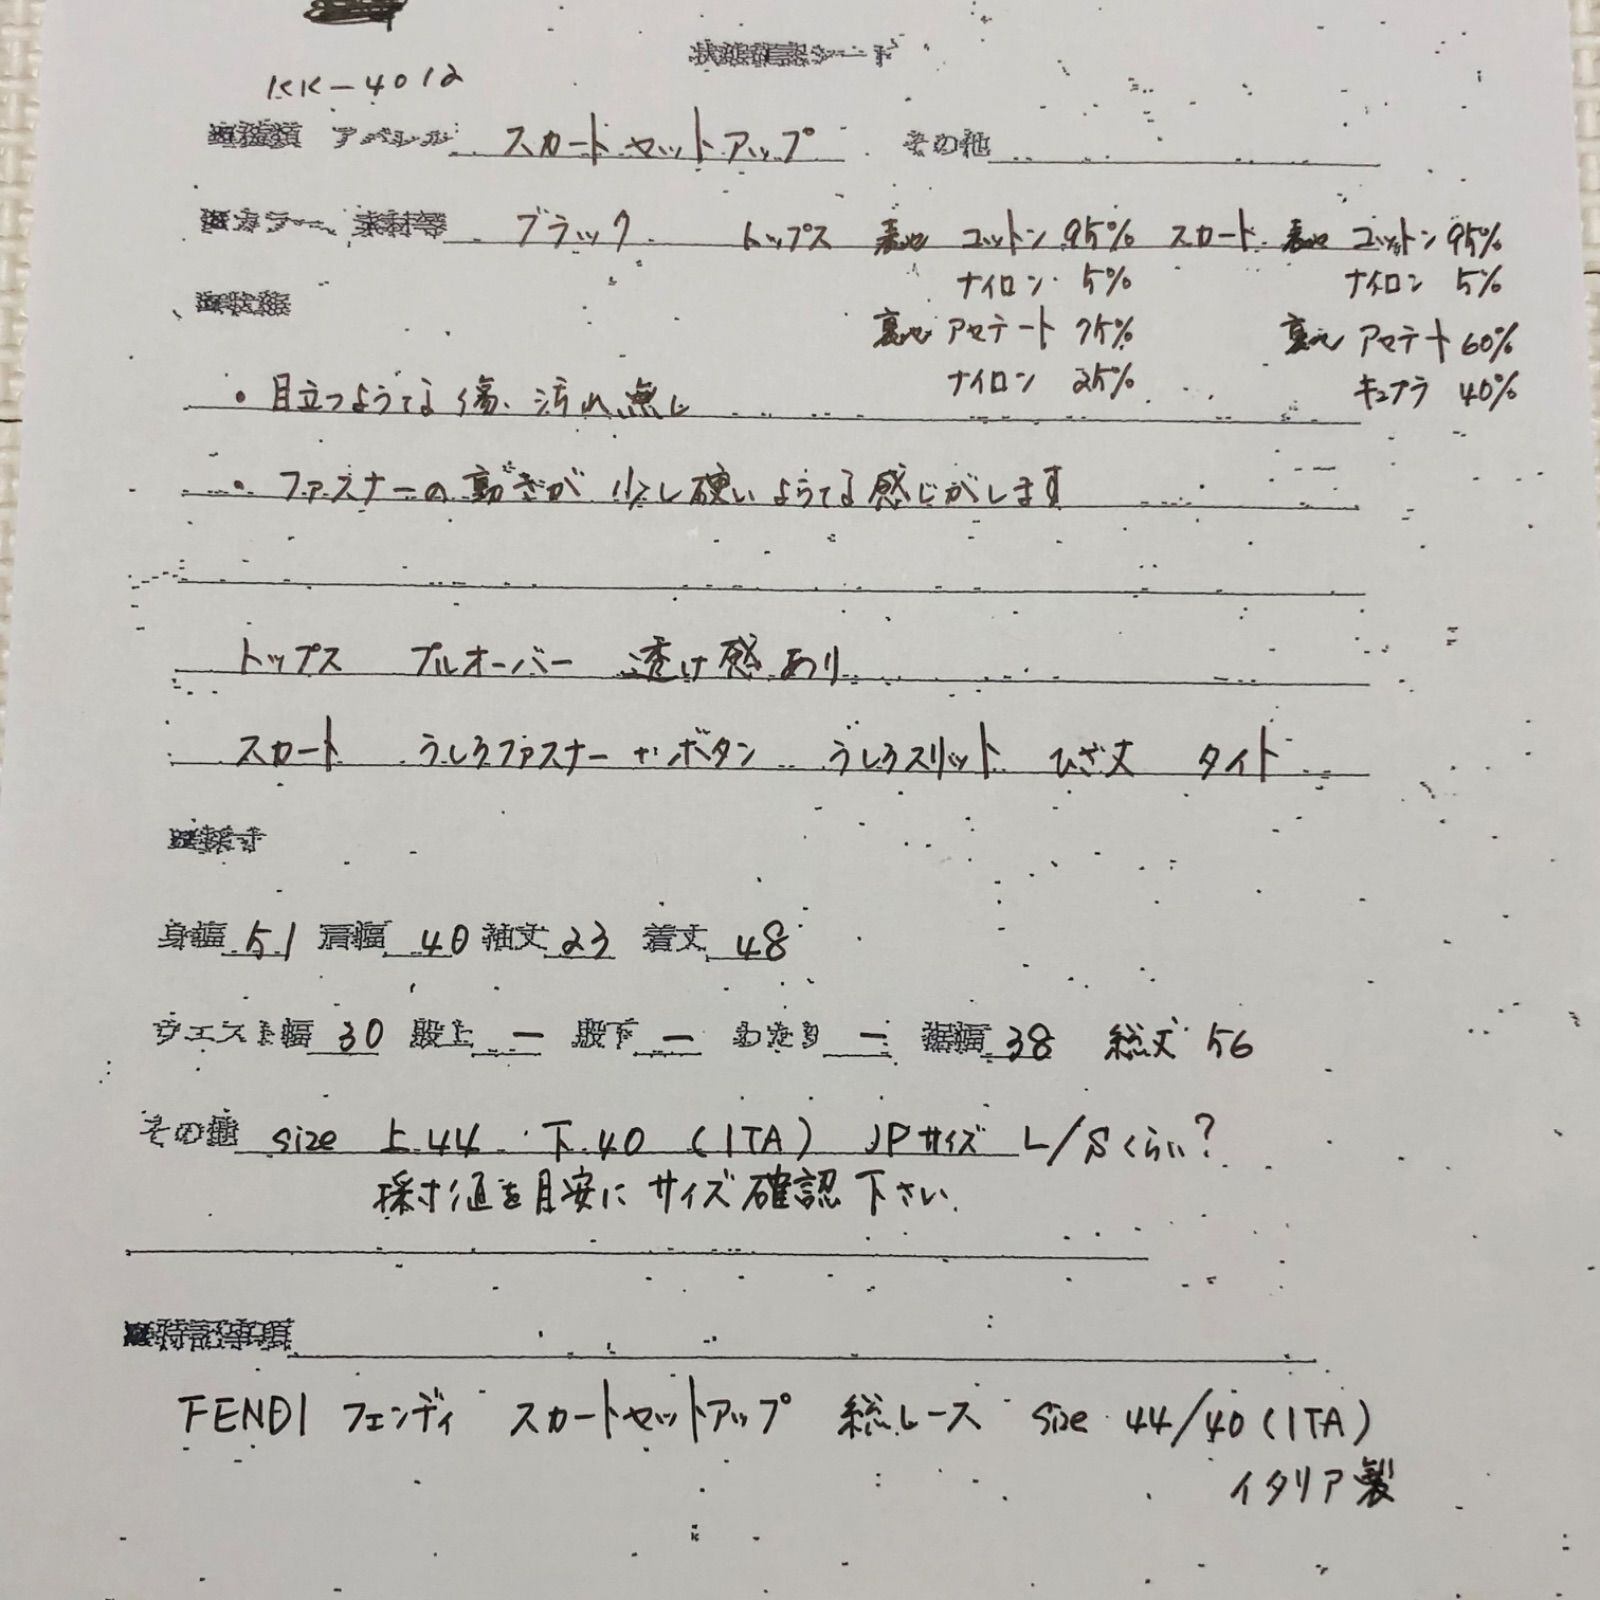 状態確認シート
KK-4012
■種類 アパレル スカートセットアップ その他
■カラー、素材等 ブラック トップス 表地 コットン 95% スカート 表地 コットン 95%
ナイロン 5% ナイロン 5%
■状態
裏地 アセテート 75% 裏地 アセテート 60%
ナイロン 25% キュプラ 40%
・目立つような傷、汚れ無し
・ファスナーの動きが少し硬いような感じがします
トップス プルオーバー 透け感あり
スカート うしろファスナー+ボタン うしろスリット ひざ丈 タイト
■採寸
身幅 51 肩幅 40 袖丈 23 着丈 48
ウエスト幅 30 股上 ー 股下 ー わたり ー 裾幅 38 総丈 56
その他 size 上44・下40 (ITA) JPサイズ L/Sくらい?
採寸値を目安にサイズ確認下さい.
■特記事項
FENDI フェンディ スカートセットアップ 総レース size 44/40(ITA)
イタリア製